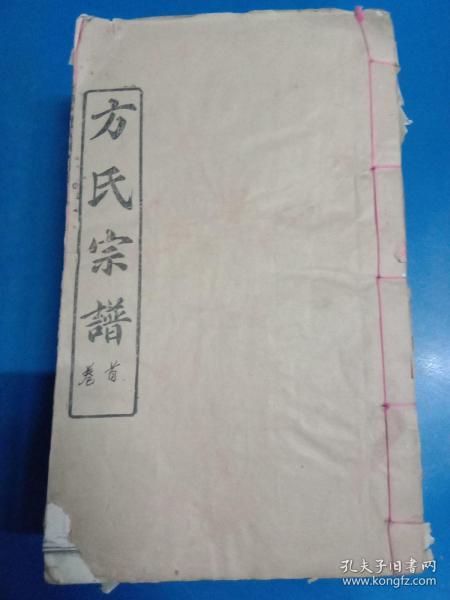 方氏宗譜
卷首
孔夫子旧书网
www.kongfz.com